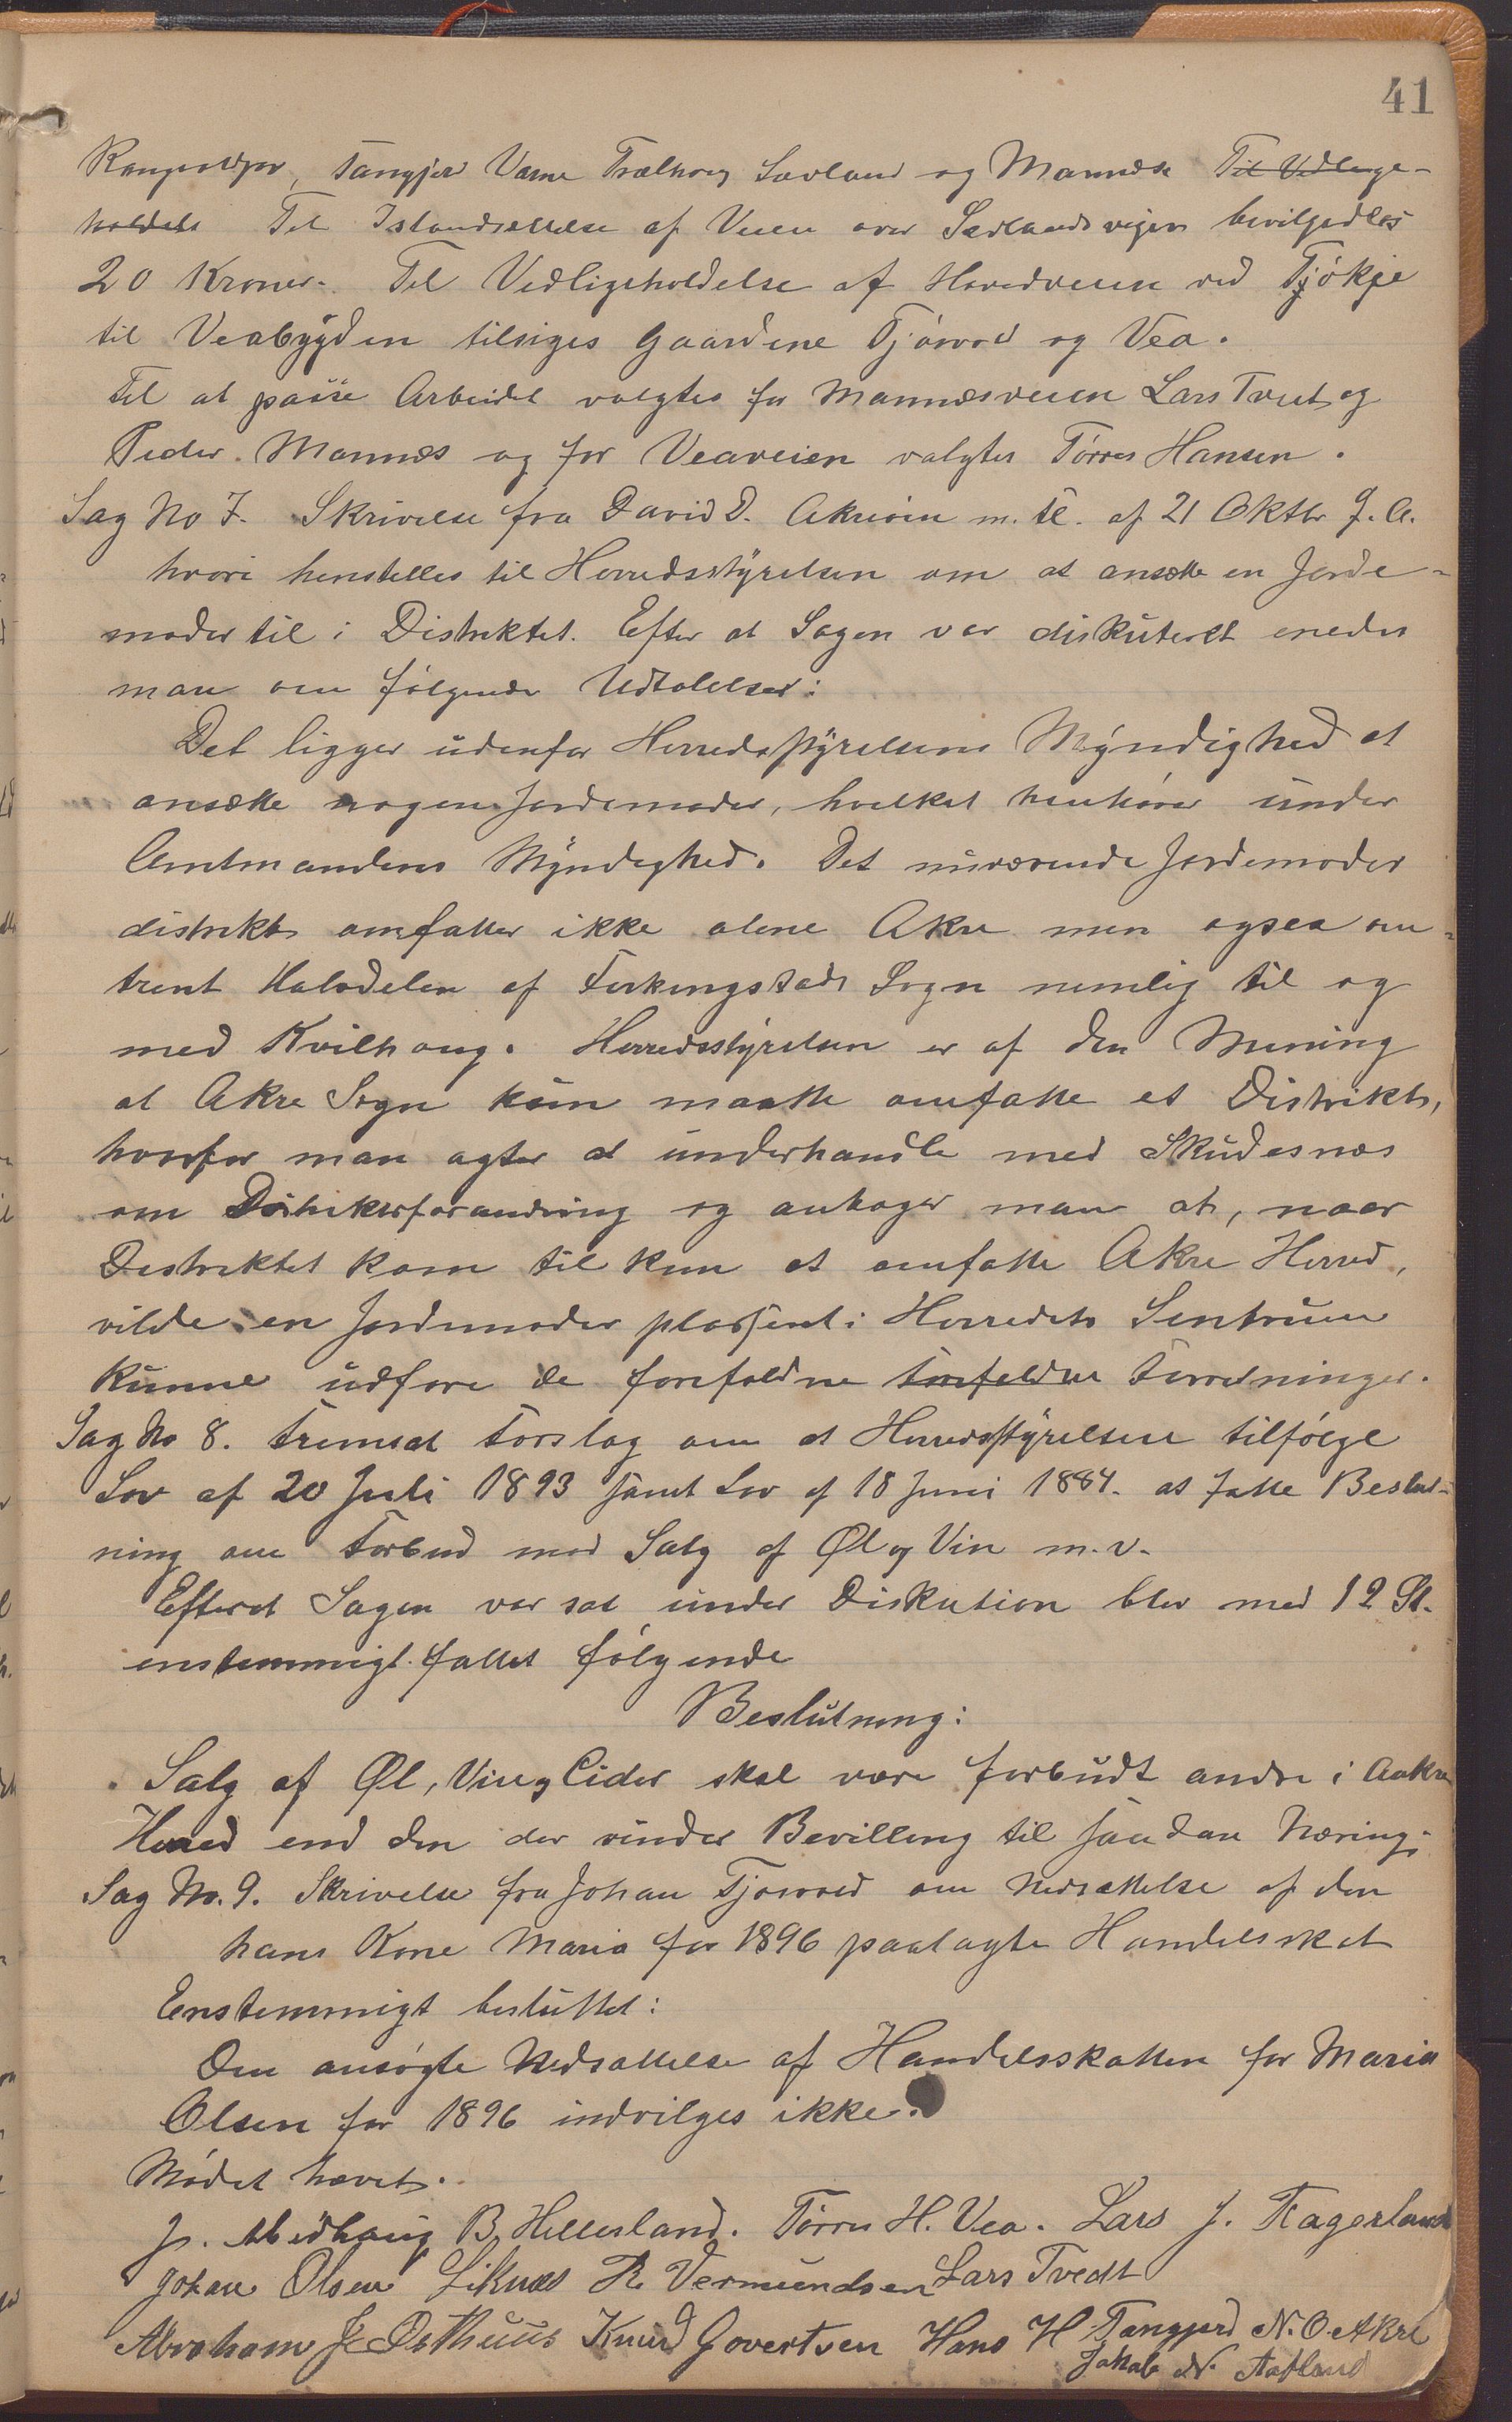 41
Tangjerd Varne Trælhoug Sævland og Mannæs ~~Til Vedlige-~~
~~holdels~~ Til Istandsættelse af Veien over Sævlandsvigen bevilgedes
20 Kroner. Til Vedligeholdelse af Hovedveien ved Tjökje
til Veabygden tilsiges Gaardene Tjösvold og Vea.
Til at passe Arbeidet valgtes for Mannæsveien Lars Tveit og
Peder Mannæs og for Veaveien valgtes Törres Hansen.
Sag No 7. Skrivelse fra David D. Akreöen m. fl. af 21 Oktbr d. A.
hvori henstilles til Herredsstyrelsen om at ansætte en Jorde-
moder til i Distriktet. Efter at Sagen var diskuteret enedes
man om fölgende Udtalelser:
Det ligger udenfor Herredsstyrelsens Myndighed at
ansætte nogen Jordemoder, hvilket henhörer under
Amtmandens Myndighed. Det nuværende Jordemoder
distrikt omfatter ikke alene Akre men ogsaa om-
trent Halvdelen af Ferkingstads Sogn nemlig til og
med Kvilhaug. Herredsstyrelsen er af den Mening
at Akre Sogn kun maatte omfatte et Distrikt,
hvorfor man agter at underhandle med Skudesnæs
om Distriktsforandring og antager man at, naar
Distriktet kom til kun at omfatte Akre Herred,
vilde en Jordemoder plassert i Herredets Sentrum
kunne udföre de forefaldne ~~forefaldne~~ Forretninger.
Sag No 8. Fremsat Forslag om at Herredsstyrelsen tilfölge
Lov af 20 Juli 1893 samt Lov af 18 Juni 1884. at fatte Beslut-
ning om Forbud mod Salg af Øl og Vin m.v.
Efterat Sagen var sat under Diskution blev med 12 St.
enstemmigt fattet fölgende
Beslutning:
Salg af Øl, Vin og Cider skal være forbudt andre i Aakre
Herred end den der vinder Bevilling til saadan Næring.
Sag No. 9. Skrivelse fra Johan Tjosvold om Nedsættelse af den
hans Kone Maria for 1896 paalagte Handelsskat
Enstemmigt besluttet:
Den ansögte Nedsættelse af Handelsskatten for Maria
Olsen for 1896 indvilges ikke.
Mödet hævet.
J. Medhaug B. Hellesland. Törres H. Vea. Lars J. Fagerland
Johan Olsen Liknæs R. Vermundsen Lars Tvedt
Abraham J. Østhuus Knud Govertsen Hans H Tangjerd N. O. Akre
Jakob N. Aafland